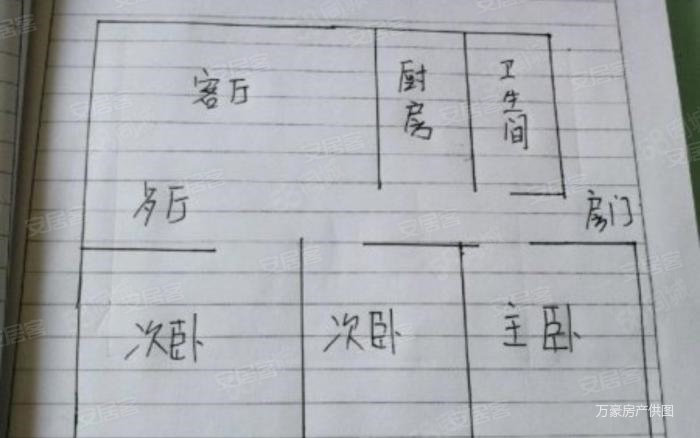 客厅
厨房
卫生间
歺厅
房门
次卧
次卧
主卧
万豪房产供图
安居客